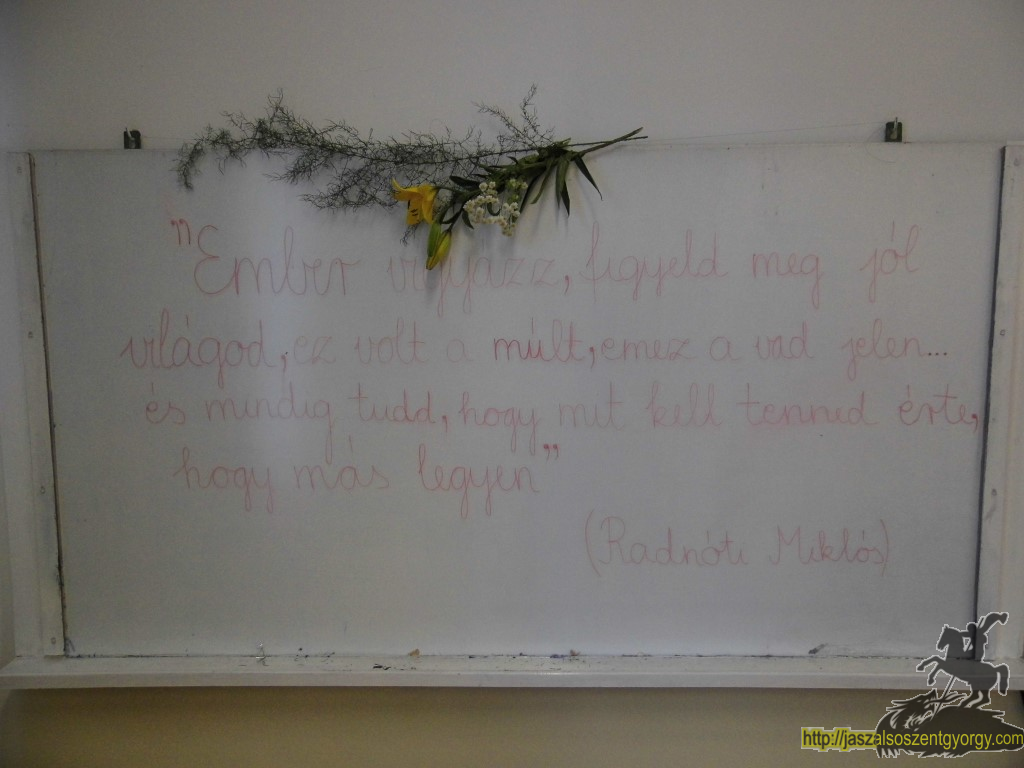 "Ember vigyázz, figyeld meg jól
világod, ez volt a múlt, emez a vad jelen...
és mindig tudd, hogy mit kell tenned érte,
hogy más legyen"
(Radnóti Miklós)
http://jaszalsoszentgyorgy.com